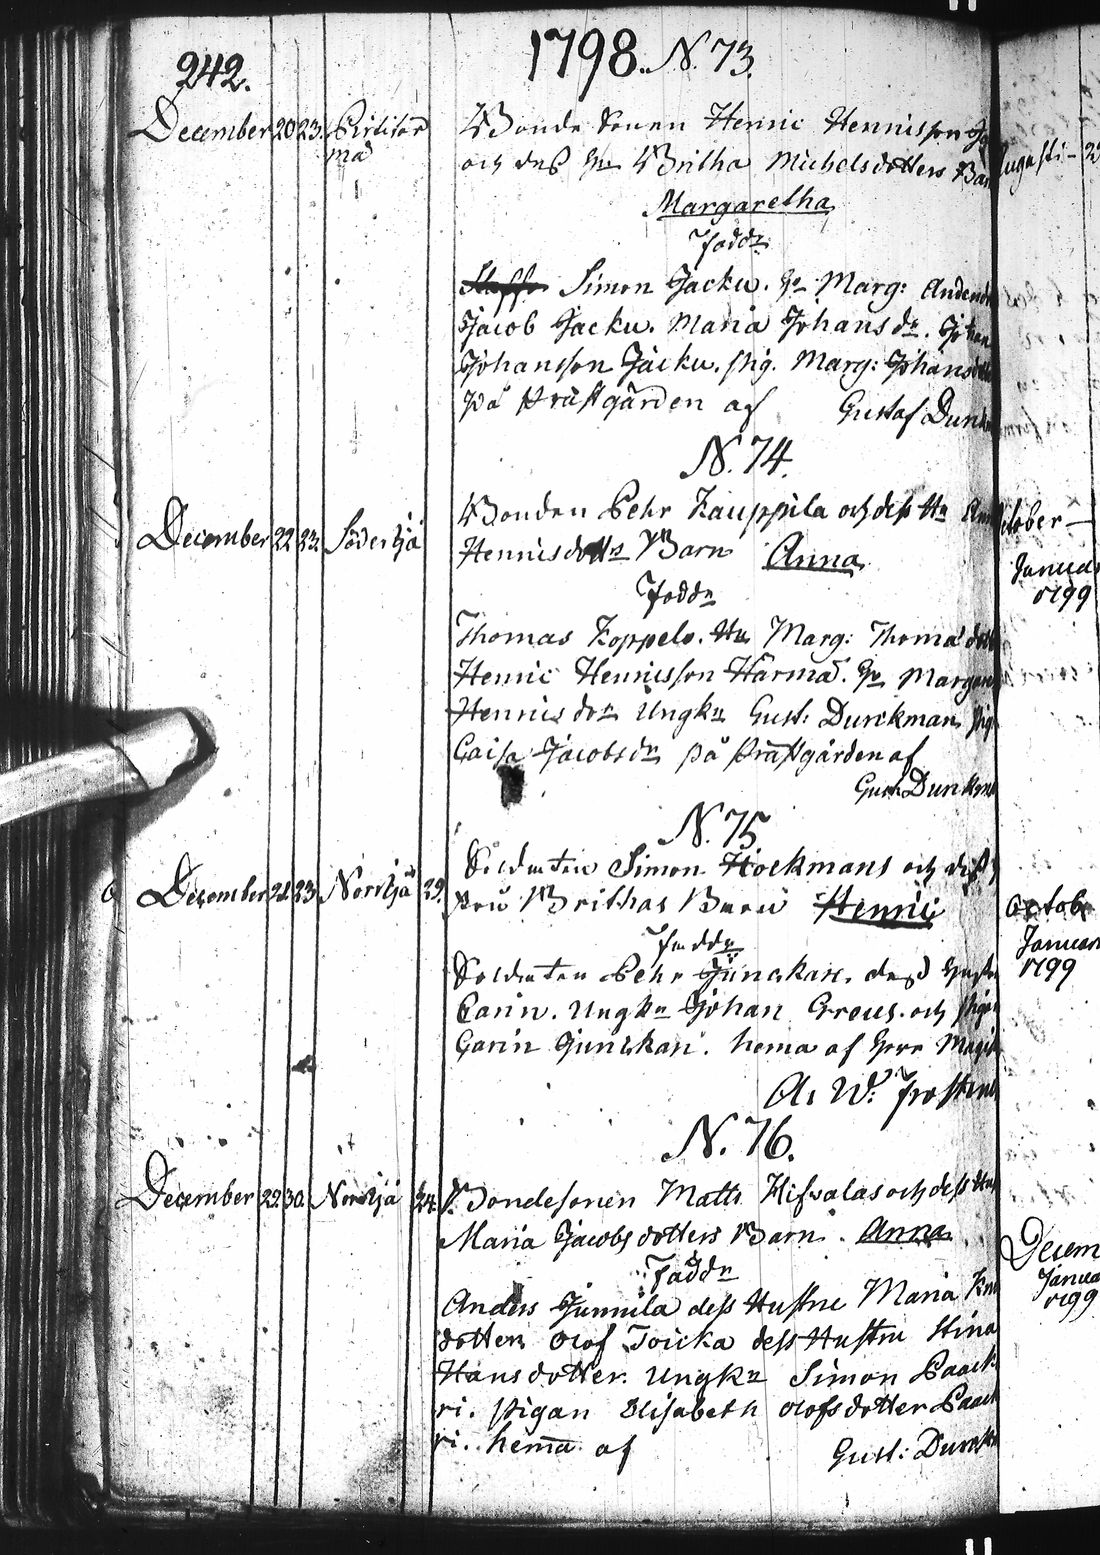 242.
1798. N. 73.
December 20 23. Pirttikåsmå
Bonde Sonen Henric Henricsson
och des Hu Britha Michelsdotters Bar
Margaretha
Faddr
Simon Jacku. Hu Marg: Anders
Jacob Jacku. Maria Johansdr. Johan
Johansson Jäcku. pig. Marg: Johans
på Prästgården af Gustaf Dunk
N. 74.
December 22 23. Söderbjä
Bonden Pehr Kauppila och dess Hu Ann
Henricsdottrs Barn Anna
Faddr
Thomas Koppelo. Hu Marg: Thomædott
Henric Henricsson Härmä. Hu Margare
Henricsdor Ungkn Gust: Dunckman pig
Caisa Jacobsdr på Prästgården af
Gust: Dunkm
N. 75
December 21 23 Norrbjä 29.
Soldaten Simon Hockmans och dess
Fru Brithas Barn Henric
Faddr
Soldaten Pehr Junckari, dess Hustru
Carin. Ungkn Johan Greus. och pigan
Carin Junckari. hema af Herr Mag
A. W: Frosteru
N. 76.
December 22 30. Norrbjä 24.
Bondesonen Matts Kifvalas och dess Hus
Maria Jacobsdotters Barn. Anna
Faddr
Anders Junnila dess Hustru Maria
dotter. Olof Toicka dess Hustru Stina
Hansdotter. Ungkn Simon Paack
ri. Pigan Elisabeth Olofsdotter Paack
ri. hema af Gust: Dunck
Augusti - 2
October
Januar
1799
Octob
Januari
1799
Decem
Janua
1799